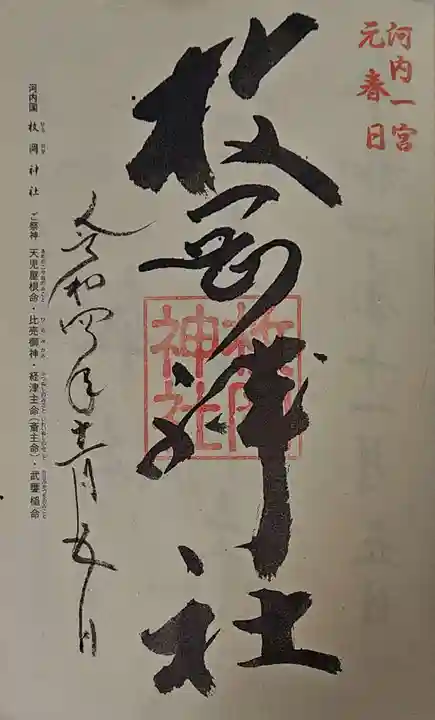 河内一宮
元春日
枚岡神社
枚岡神社
令和四年十一月五日
河内国 枚岡神社 ご祭神 天児屋根命・比売御神・経津主命(斎主命)・武甕槌命